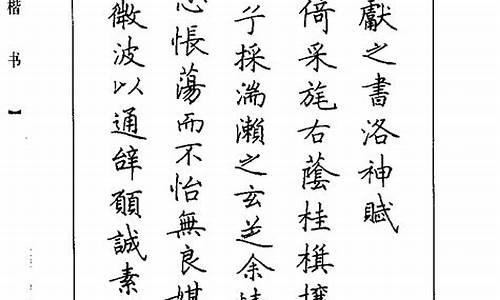 獻之書洛神賦
倚采旄右蔭桂棋攘
兮採湍瀨之玄芝余情
心悵蕩而不怡無良媒
微波以通辭願誠素
楷书】